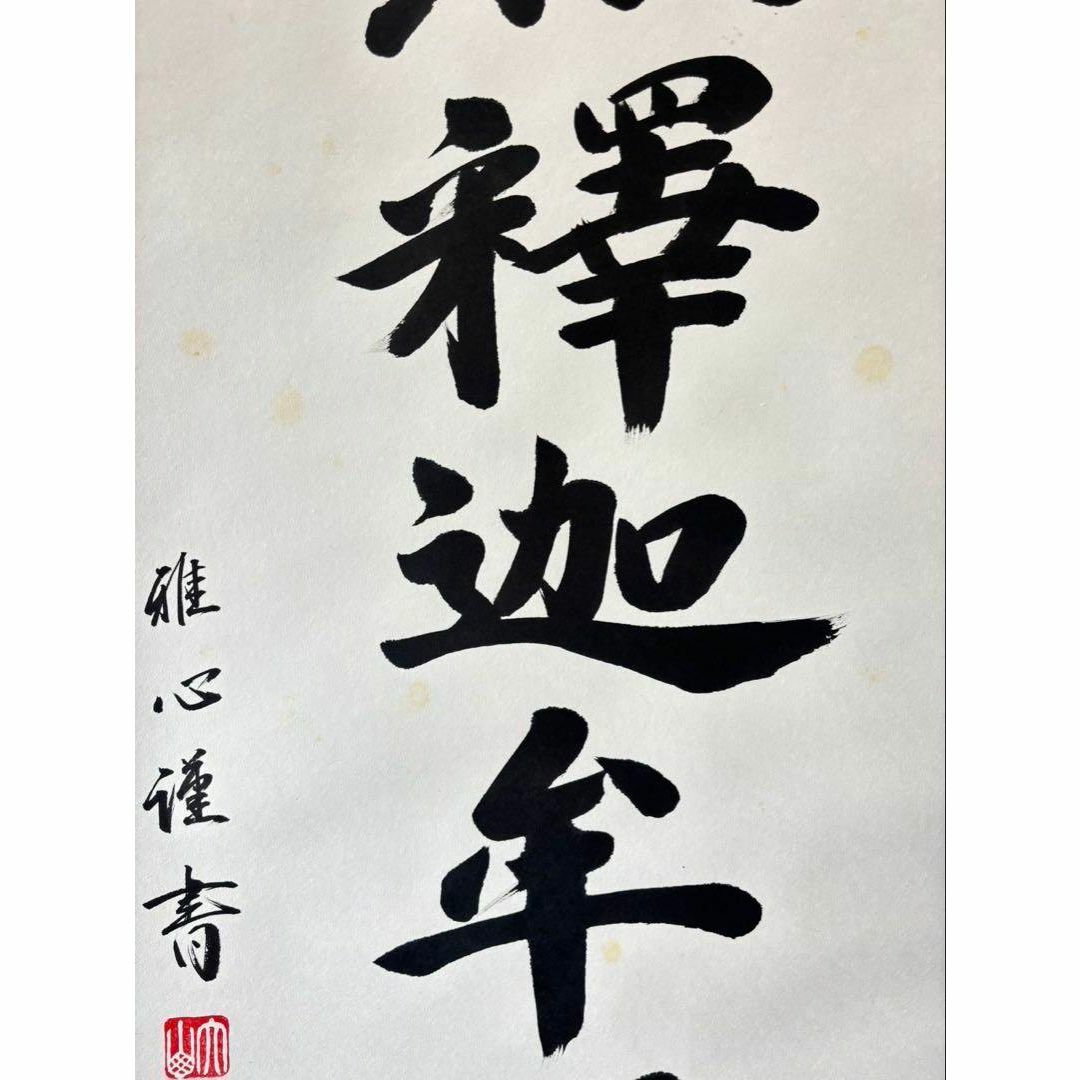 釋迦牟
雅心謹書